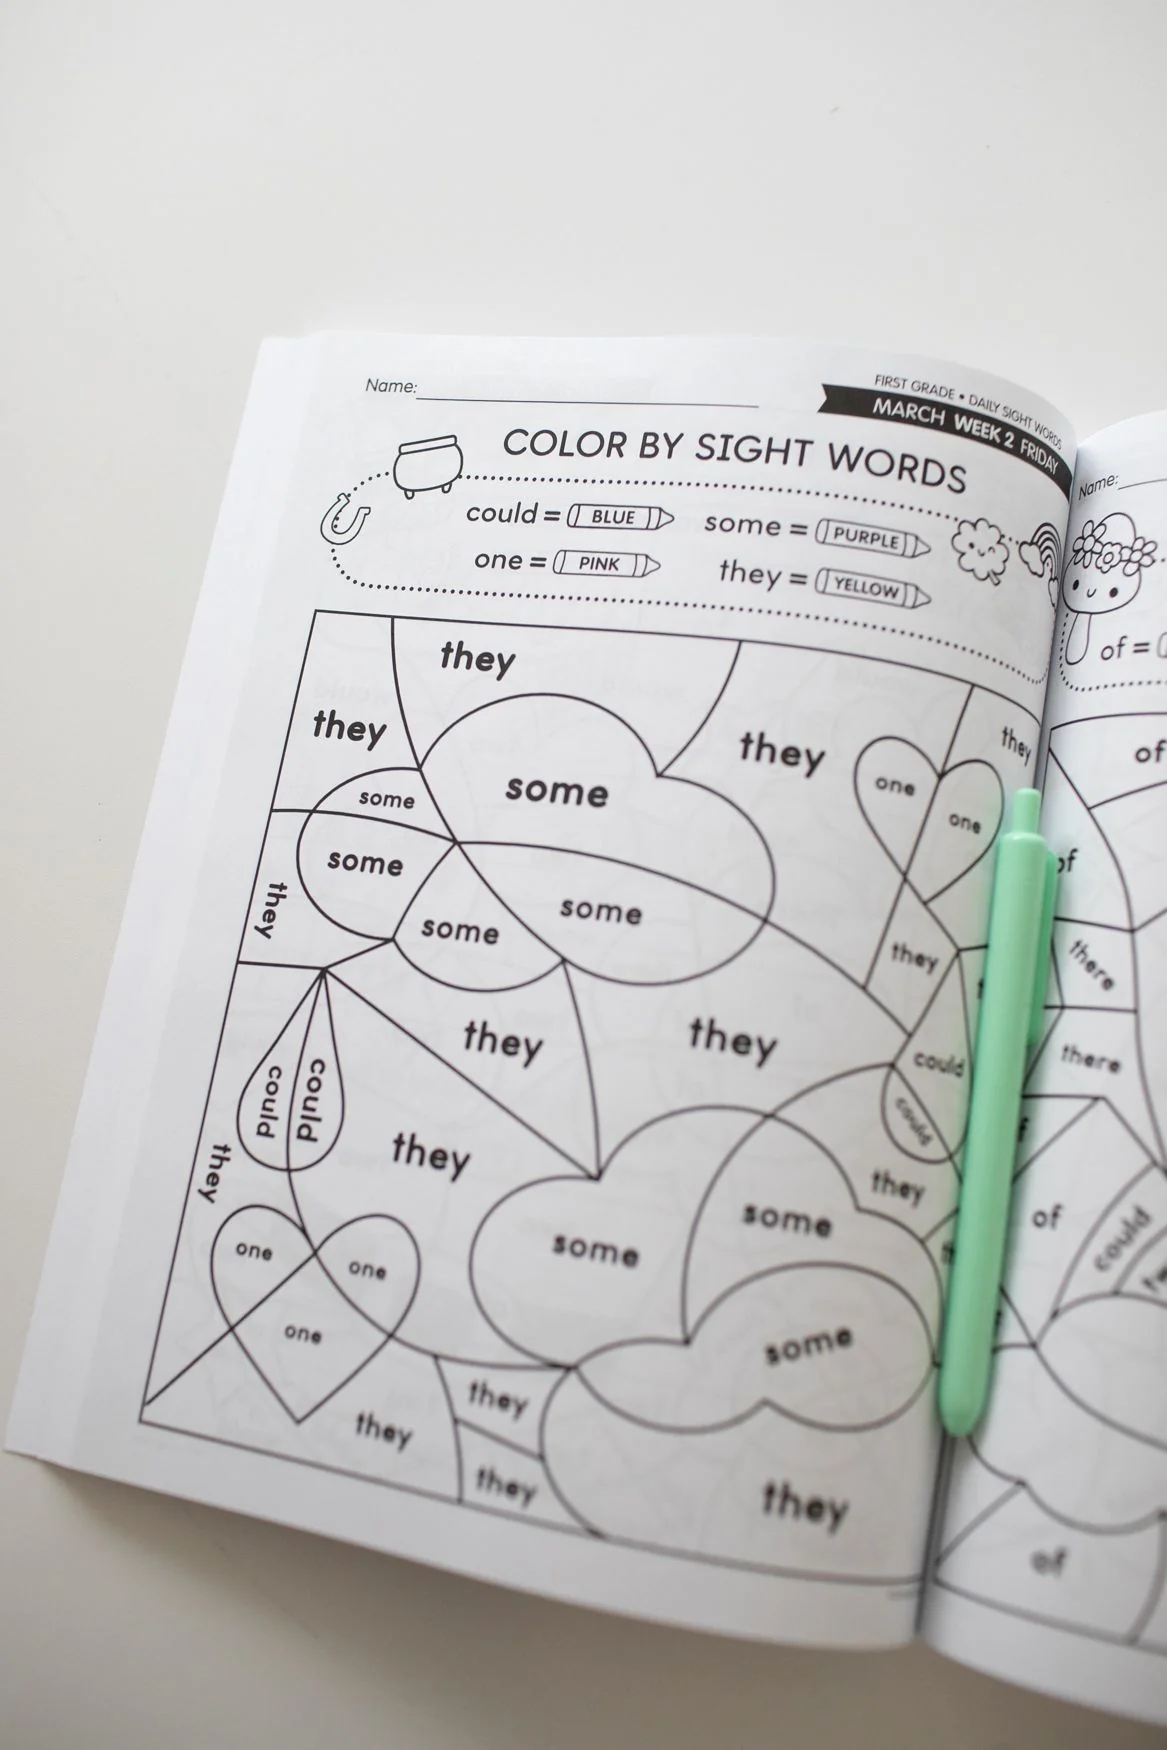 Name:
FIRST GRADE • DAILY SIGHT WORDS
MARCH WEEK 2 FRIDAY
COLOR BY SIGHT WORDS
could = BLUE
some = PURPLE
one = PINK
they = YELLOW
they
they
they
they
some
some
one
one
some
some
some
they
they
they
they
could
could
could
could
they
they
they
some
some
one
one
one
some
they
they
they
they
Name:
of =
of
of
there
there
of
could
of